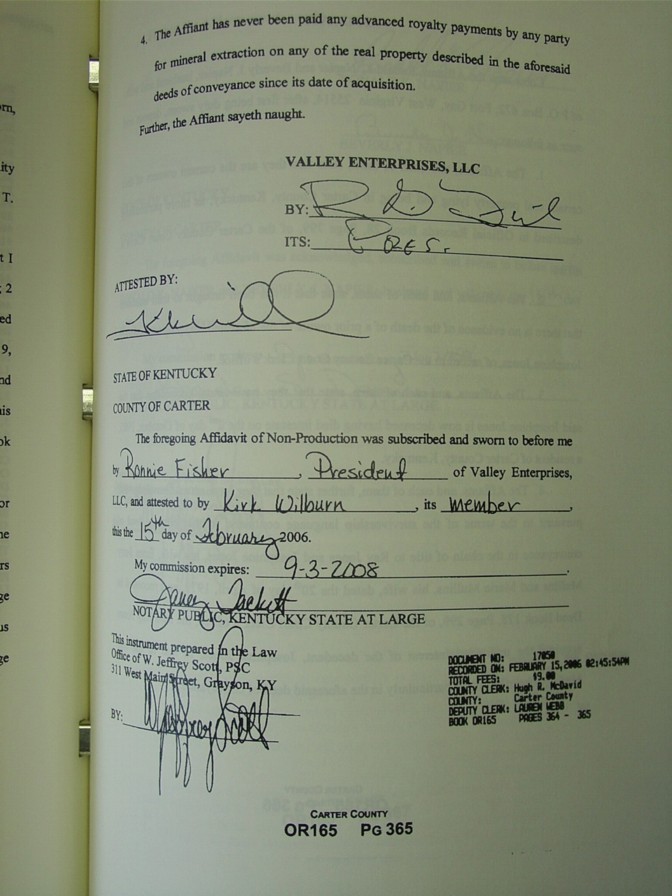 4. The Affiant has never been paid any advanced royalty payments by any party
for mineral extraction on any of the real property described in the aforesaid
deeds of conveyance since its date of acquisition.
Further, the Affiant sayeth naught.
VALLEY ENTERPRISES, LLC
BY:
ITS: PRES.
ATTESTED BY:
STATE OF KENTUCKY
COUNTY OF CARTER
The foregoing Affidavit of Non-Production was subscribed and sworn to before me
by Ronnie Fisher, President of Valley Enterprises,
LLC, and attested to by Kirk Wilburn, its member,
this the 15th day of February, 2006.
My commission expires: 9-3-2008.
Janey Tackett
NOTARY PUBLIC, KENTUCKY STATE AT LARGE
This instrument prepared in the Law
Office of W. Jeffrey Scott, PSC
311 West Main Street, Grayson, KY
BY:
DOCUMENT NO: 17050
RECORDED ON: FEBRUARY 15,2006 02:45:54PM
TOTAL FEES: $9.00
COUNTY CLERK: Hugh R. McDavid
COUNTY: Carter County
DEPUTY CLERK: LAUREN WEBB
BOOK OR165 PAGES 364 - 365
CARTER COUNTY
OR165 PG 365
rn,
ity
T.
t I
2
ed
9,
nd
is
ok
or
ne
rs
ge
us
ge